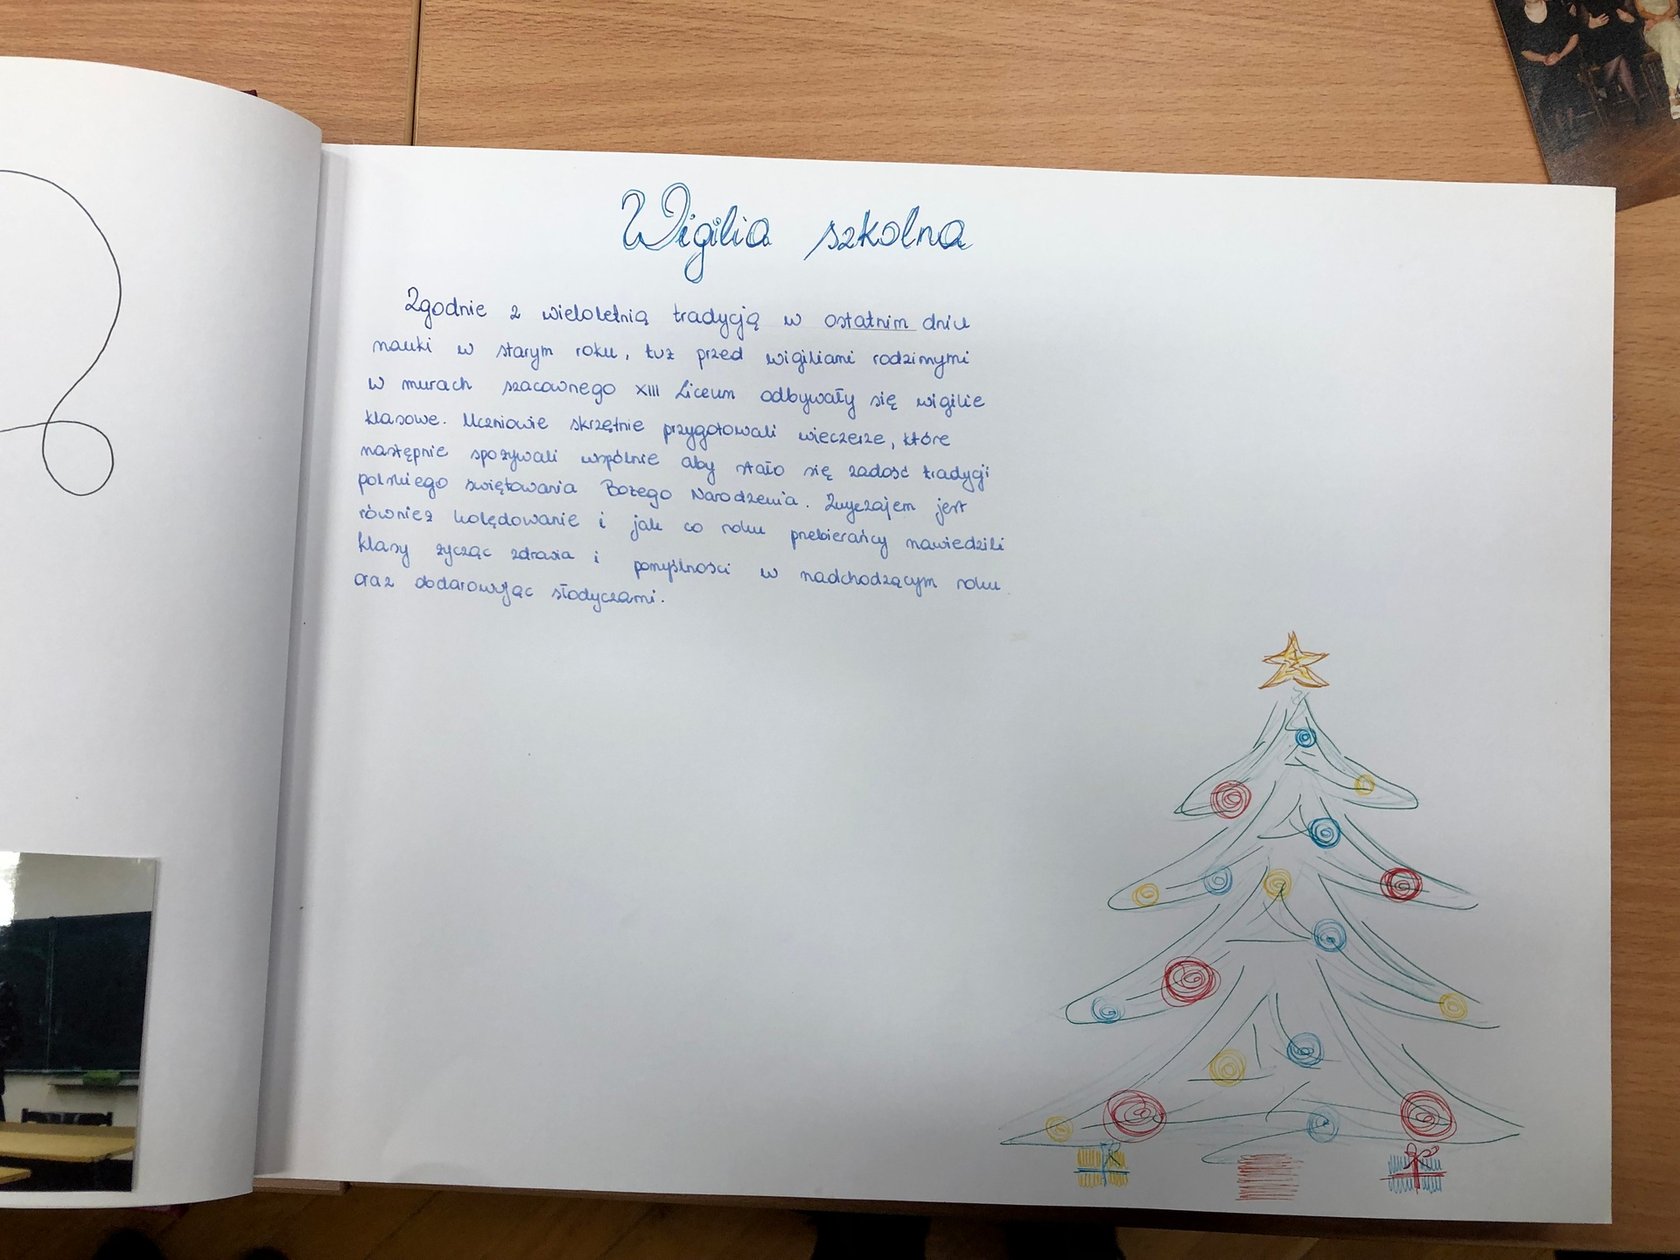 Wigilia szkolna
Zgodnie z wieloletnią tradycją w ostatnim dniu
nauki w starym roku, tuż przed wigiliami rodzinnymi
w murach szacownego XIII Liceum odbywały się wigilie
klasowe. Uczniowie skrzętnie przygotowali wieczerze, które
następnie spożywali wspólnie aby stało się zadość tradycji
polskiego świętowania Bożego Narodzenia. Zwyczajem jest
również kolędowanie i jak co roku przebierańcy nawiedzili
klasy życząc zdrowia i pomyślności w nadchodzącym roku
oraz obdarowując słodyczami.